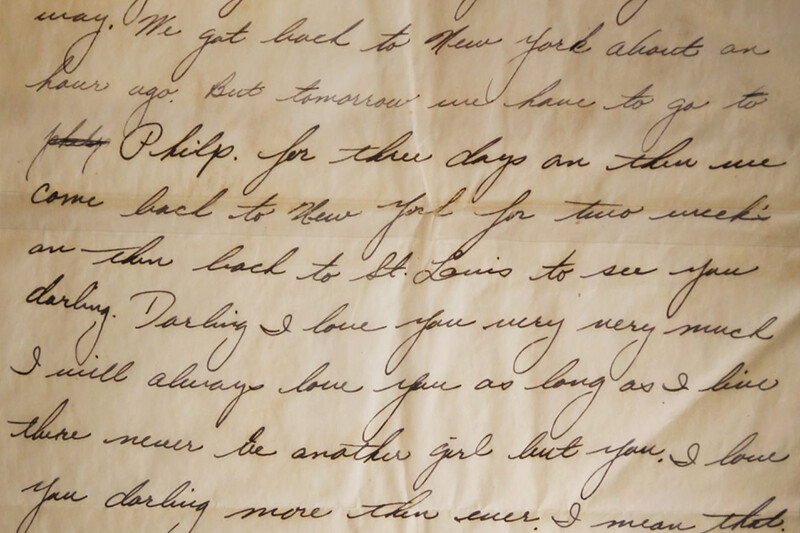 way. We got back to New York about an
hour ago. But tomorrow we have to go to
Philp. for three days an then we
come back to New York for two week's
an then back to St. Louis to see you
darling. Darling I love you very very much
I will always love you as long as I live
there never be another girl but you. I love
you darling more then ever. I mean that.